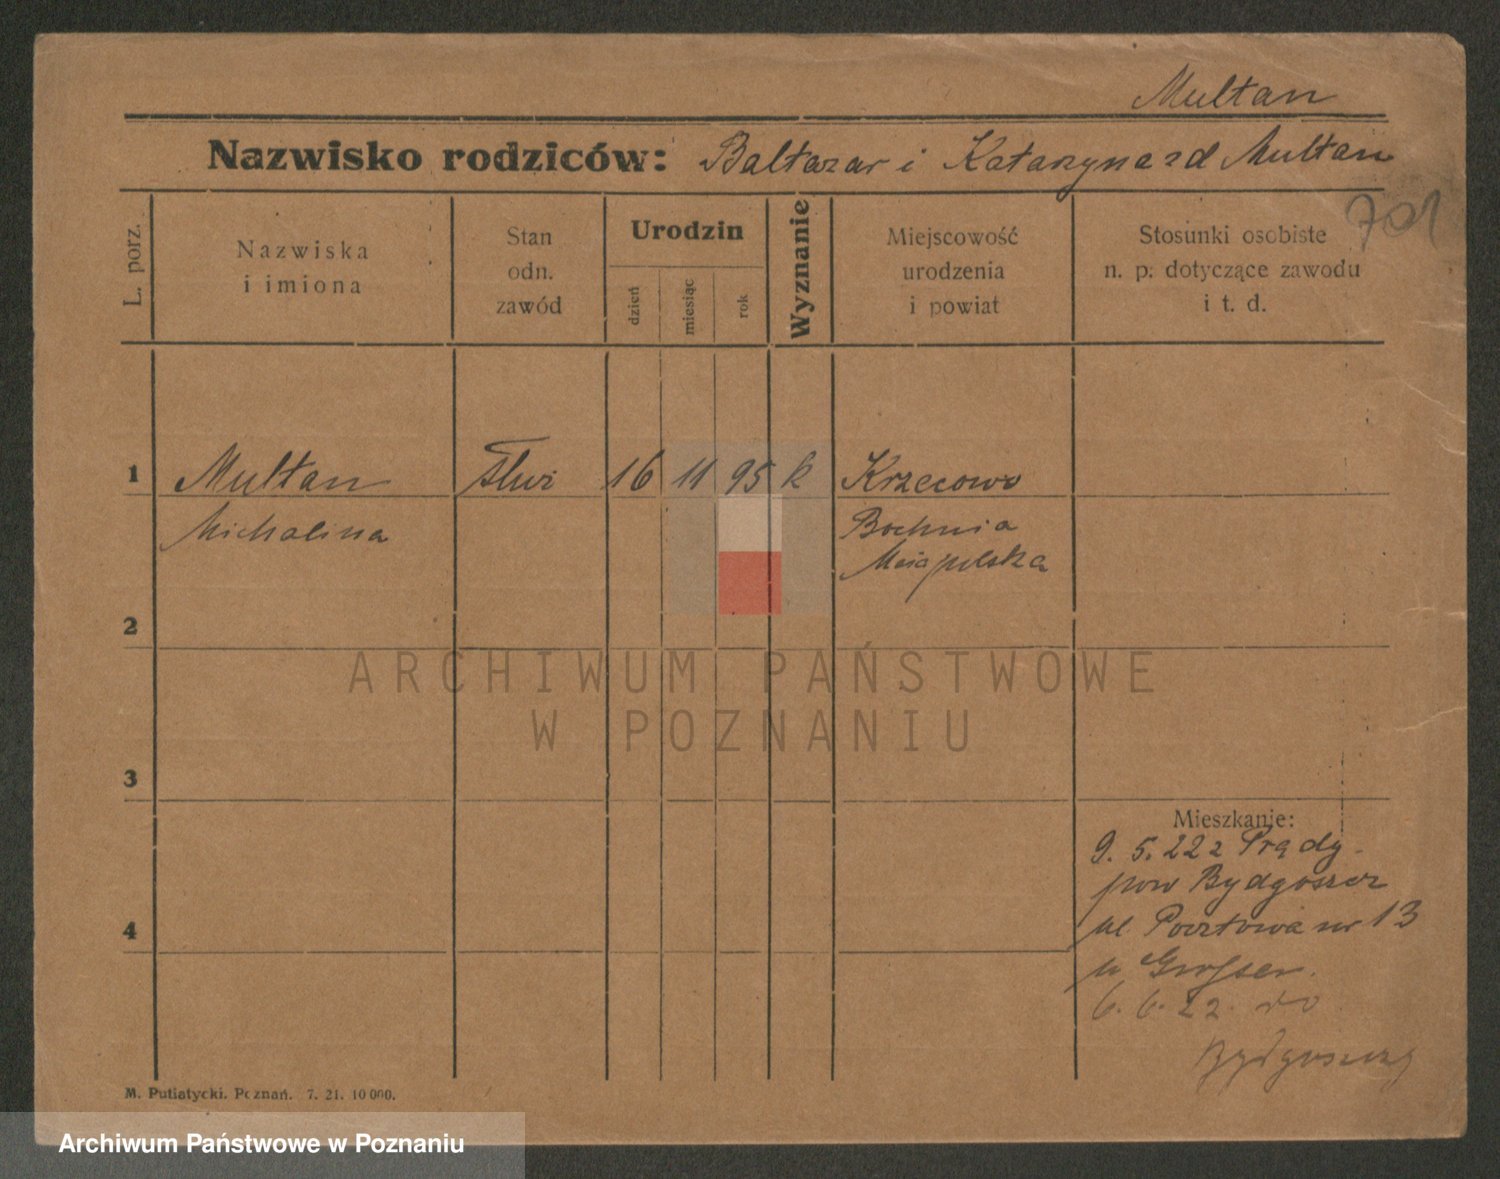 Multan
Nazwisko rodziców: Baltazar i Katarzyna zd Multan
701
L. porz.
Nazwiska
i imiona
Stan
odn.
zawód
Urodzin
dzień
miesiąc
rok
Wyznanie
Miejscowość
urodzenia
i powiat
Stosunki osobiste
n. p. dotyczące zawodu
i t. d.
1 Multan 16 11 95 k Krzecowo
Michalina Bochnia
2
ARCHIWUM PAŃSTWOWE
W POZNANIU
3
Mieszkanie:
9. 5. 22 z Prądy
pow Bydgoszcz
4
ul. Pocztowa nr 13
u Grosser.
6. 6. 22. do
Bydgoszczy
M. Putiatycki. Poznań. 7. 21. 10 000.
Archiwum Państwowe w Poznaniu